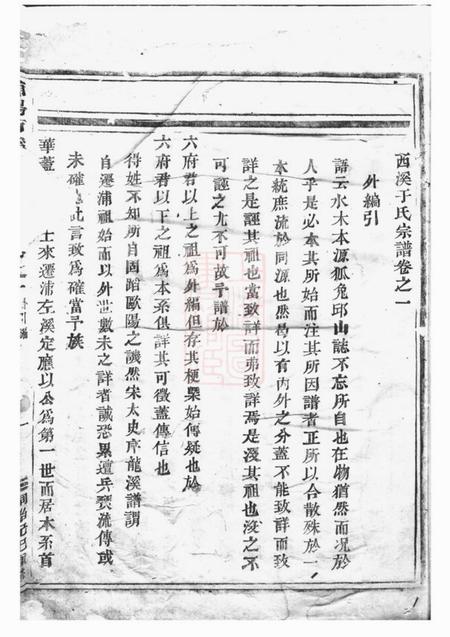 西溪于氏宗譜卷之一
外編引
語云水木本源狐兔邱山誌不忘所自也在物猶然而况於
人乎是必本其所始而注其所因譜者正所以合散殊於一
本統庶流於同源也然曷以有内外之分蓋不能致詳而致
詳之是誣其祖也當致詳而弗致詳焉是没其祖也没之不
可誣之尤不可故予譜於
六府君以上之祖為外編但存其梗槩始傳疑也於
六府君以下之祖為本系俱詳其可徵蓋傳信也
得姓不知所自固蹈歐陽之譏然宋太史序龍溪譜謂
自遷浦祖始而以外世數未之詳者誠恐累遭兵燹流傳或
未確 此言致為確當予族
華萱 上來遷浦左溪定廳以公為第一世而居本系首